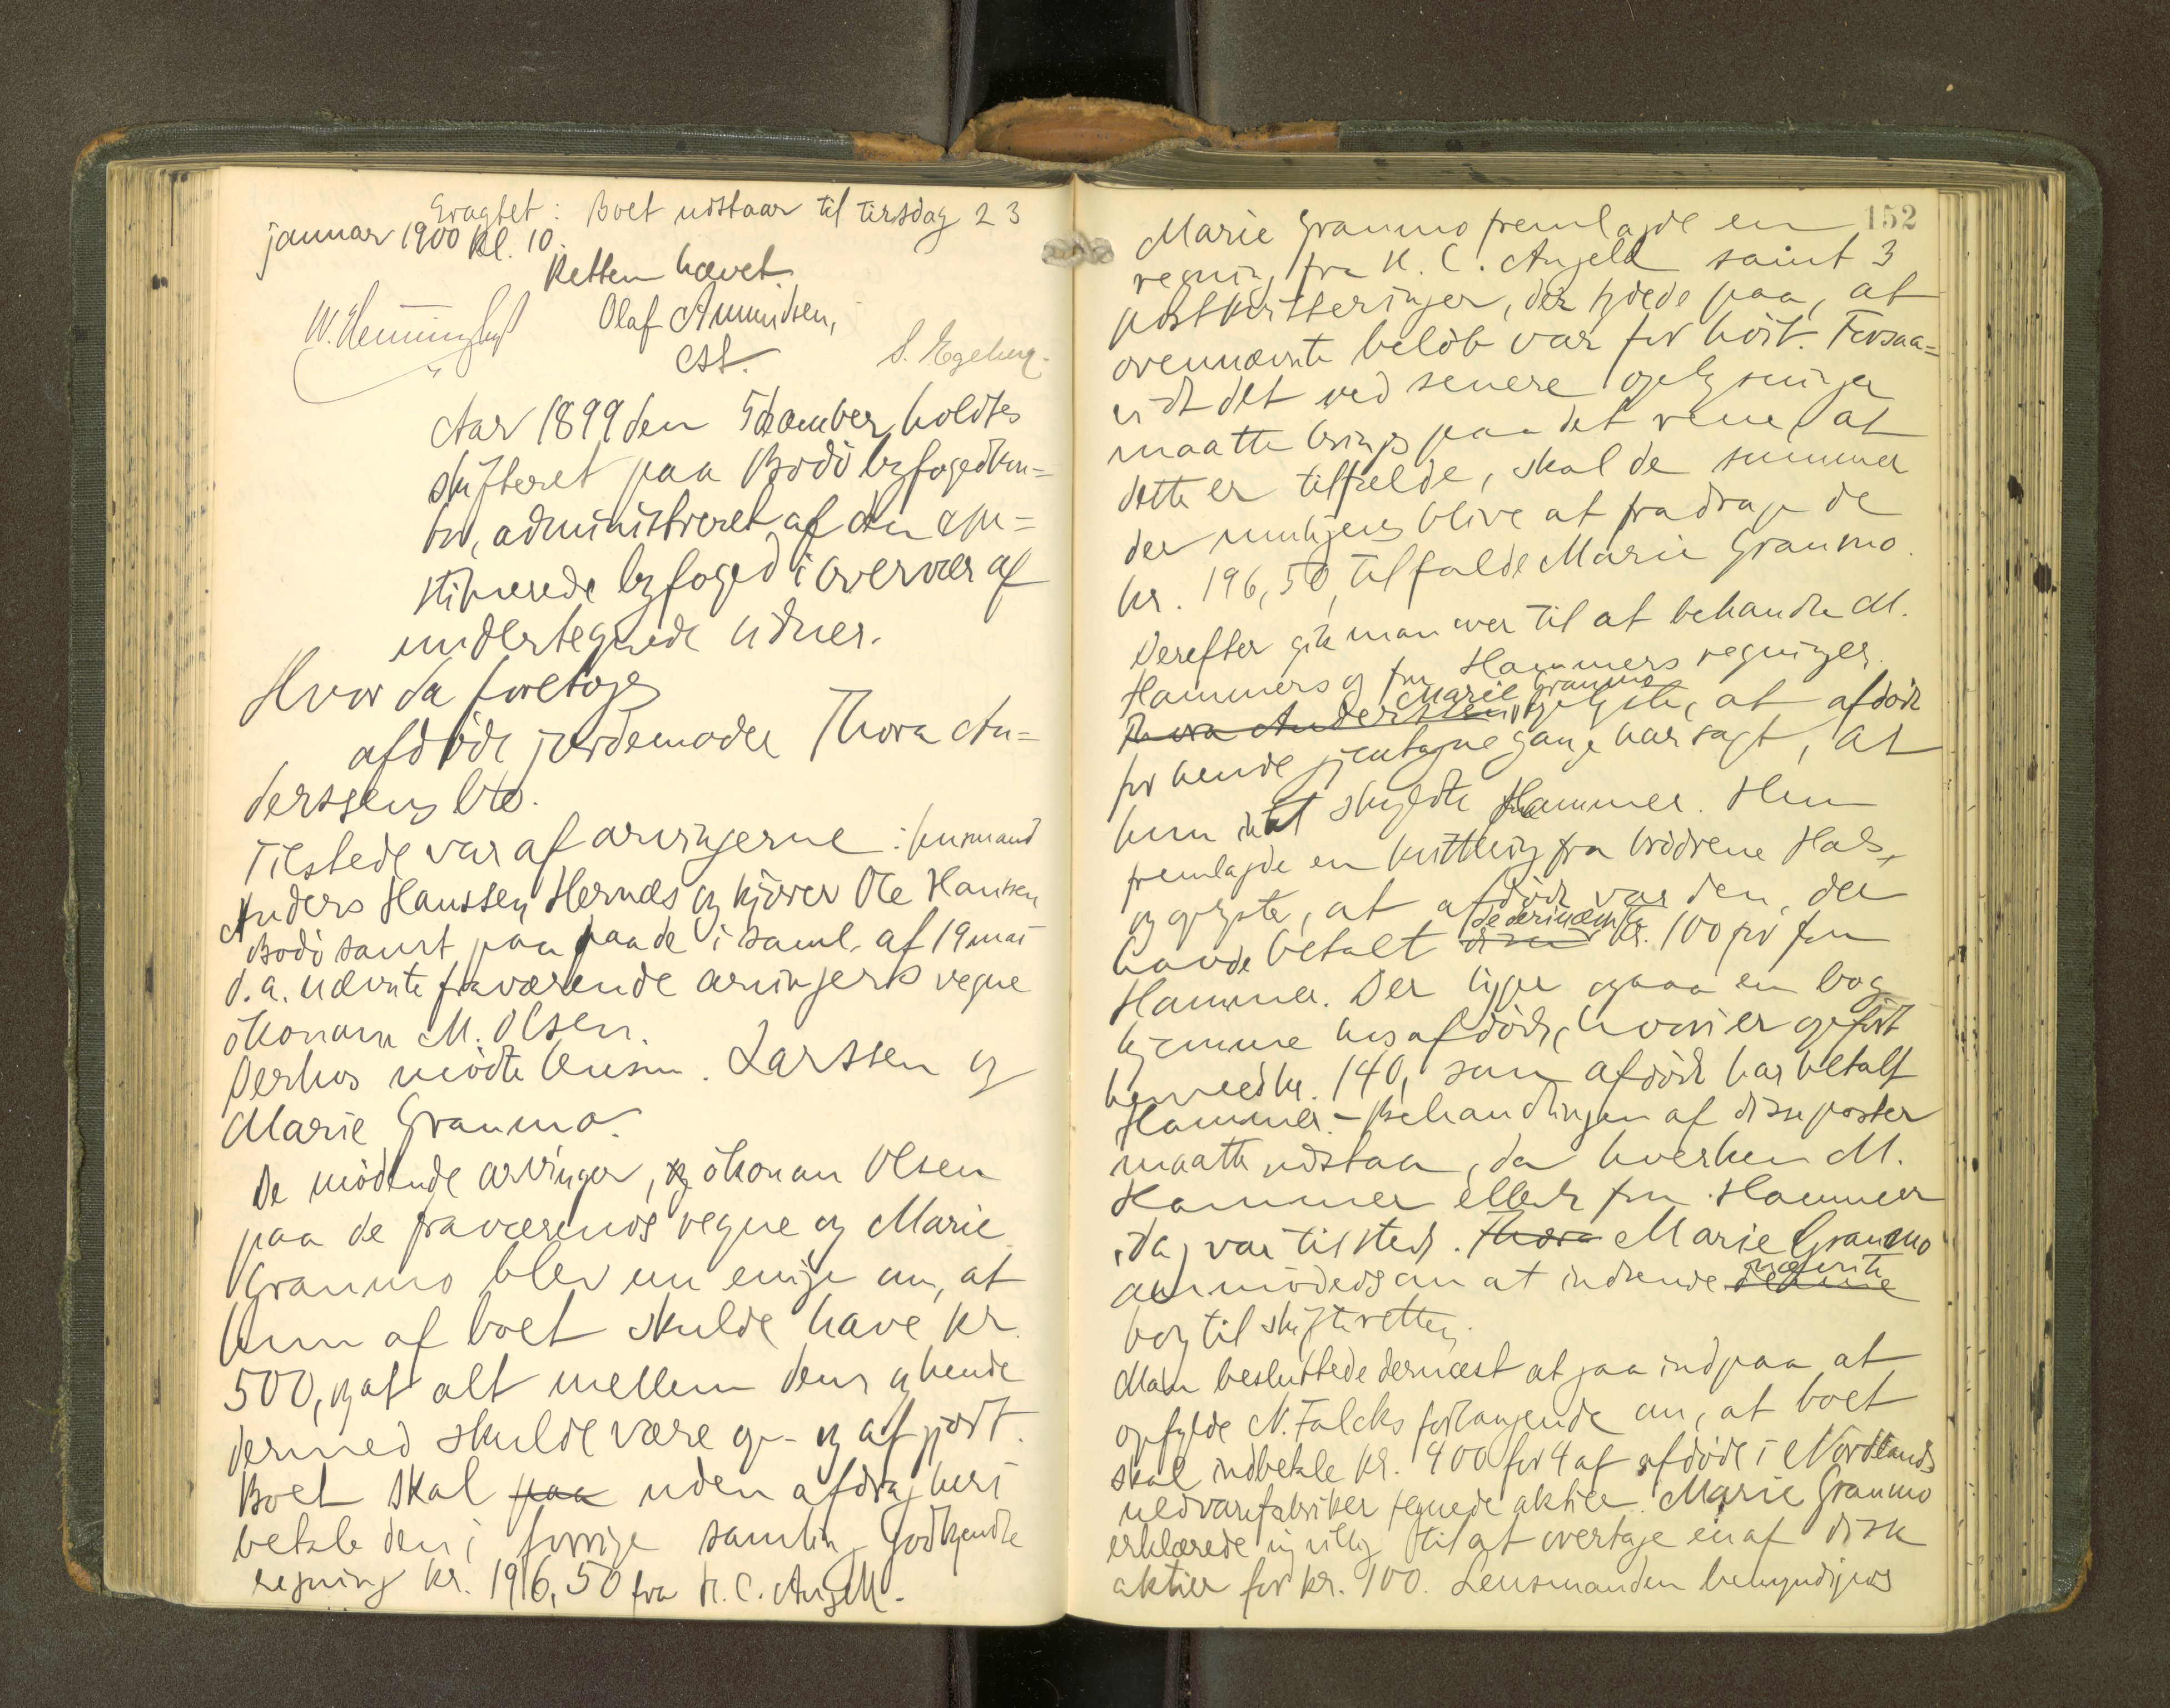 Eragtet: Boet udstaar til tirsdag 23
januar 1900 kl. 10.
Retten hævet.
Olaf Amundsen,
cst.
S. Egeberg.
Aar 1899 den 5 december holdtes
skifteret paa Bodö byfogedkon=
tor, administreret af den con=
stituerede byfoged i overvær af
undertegnede vidner.
Hvor da foretoges
afdöde jordemoder Thora An=
derssens bo.
Tilstede var af arvingerne: husmand
Anders Hanssen Hernæs og kjører Ole Hansen
Bodö samt paa paa de i saml. af 19 mai
d. a. nævnte fraværende arvingers vegne
ökonom M. Olsen.
Derhos mödte lensm. Larssen og
Marie Granmo.
De mödende arvinger, og ökonom Olsen
paa de fraværendes vegne og Marie
Granmo blev nu enige om, at
hun af boet skulde have kr.
500, og at alt mellem dem og hende
dermed skulde være op- og afgjort.
Boet skal paa uden afdrag heri
betale den i forrige samling godkjendte
regning kr. 196,50 fra H. C. Angell.
152
Marie Granmo fremlagde en
regning fra H. C. Angell samt 3
postkvitteringer, der tydede paa, at
ovennævnte belöb var for höit. Forsaa=
vidt det ved senere oplysninger
maatte bringes paa det rene, at
dette er tilfælde, skal de summer
der muligens blive at fradrage de
kr. 196,50, tilfalde Marie Granmo.
Derefter gik man over til at behandle M.
Hammers og fru Hammers regninger.
Marie Granmo
Thora Anderssen oplyste, at afdöde
for hende gjentagne gange har sagt, at
hun intet skyldte Hammer. Hun
fremlagde en kvittering fra brödrene Hals,
og oplyste, at afdöde var den, der
de deri nævnte
havde betalt disse kr. 100 for fru
Hammer. Der ligger ogsaa en bog
hjemme hos afdöde, hvori er opfört
henved kr. 140, som afdöde har betalt
Hammer. - Behandlingen af disse poster
maatte udstaa, da hverken M.
Hammer eller fru Hammer
idag var tilstede. Thora Marie Granmo
nævnte
anmodedes om at indsende denne
bog til skifteretten.
Man besluttede dernæst at gaa ind paa at
opfylde N. Falcks forlangende om, at boet
skal indbetale kr. 400 for 4 af afdöde i Nordlands
uldvarefabriker tegnede aktier. Marie Granmo
erklærede sig villig til at overtage en af disse
aktier for kr. 100. Lensmanden bemyndiges